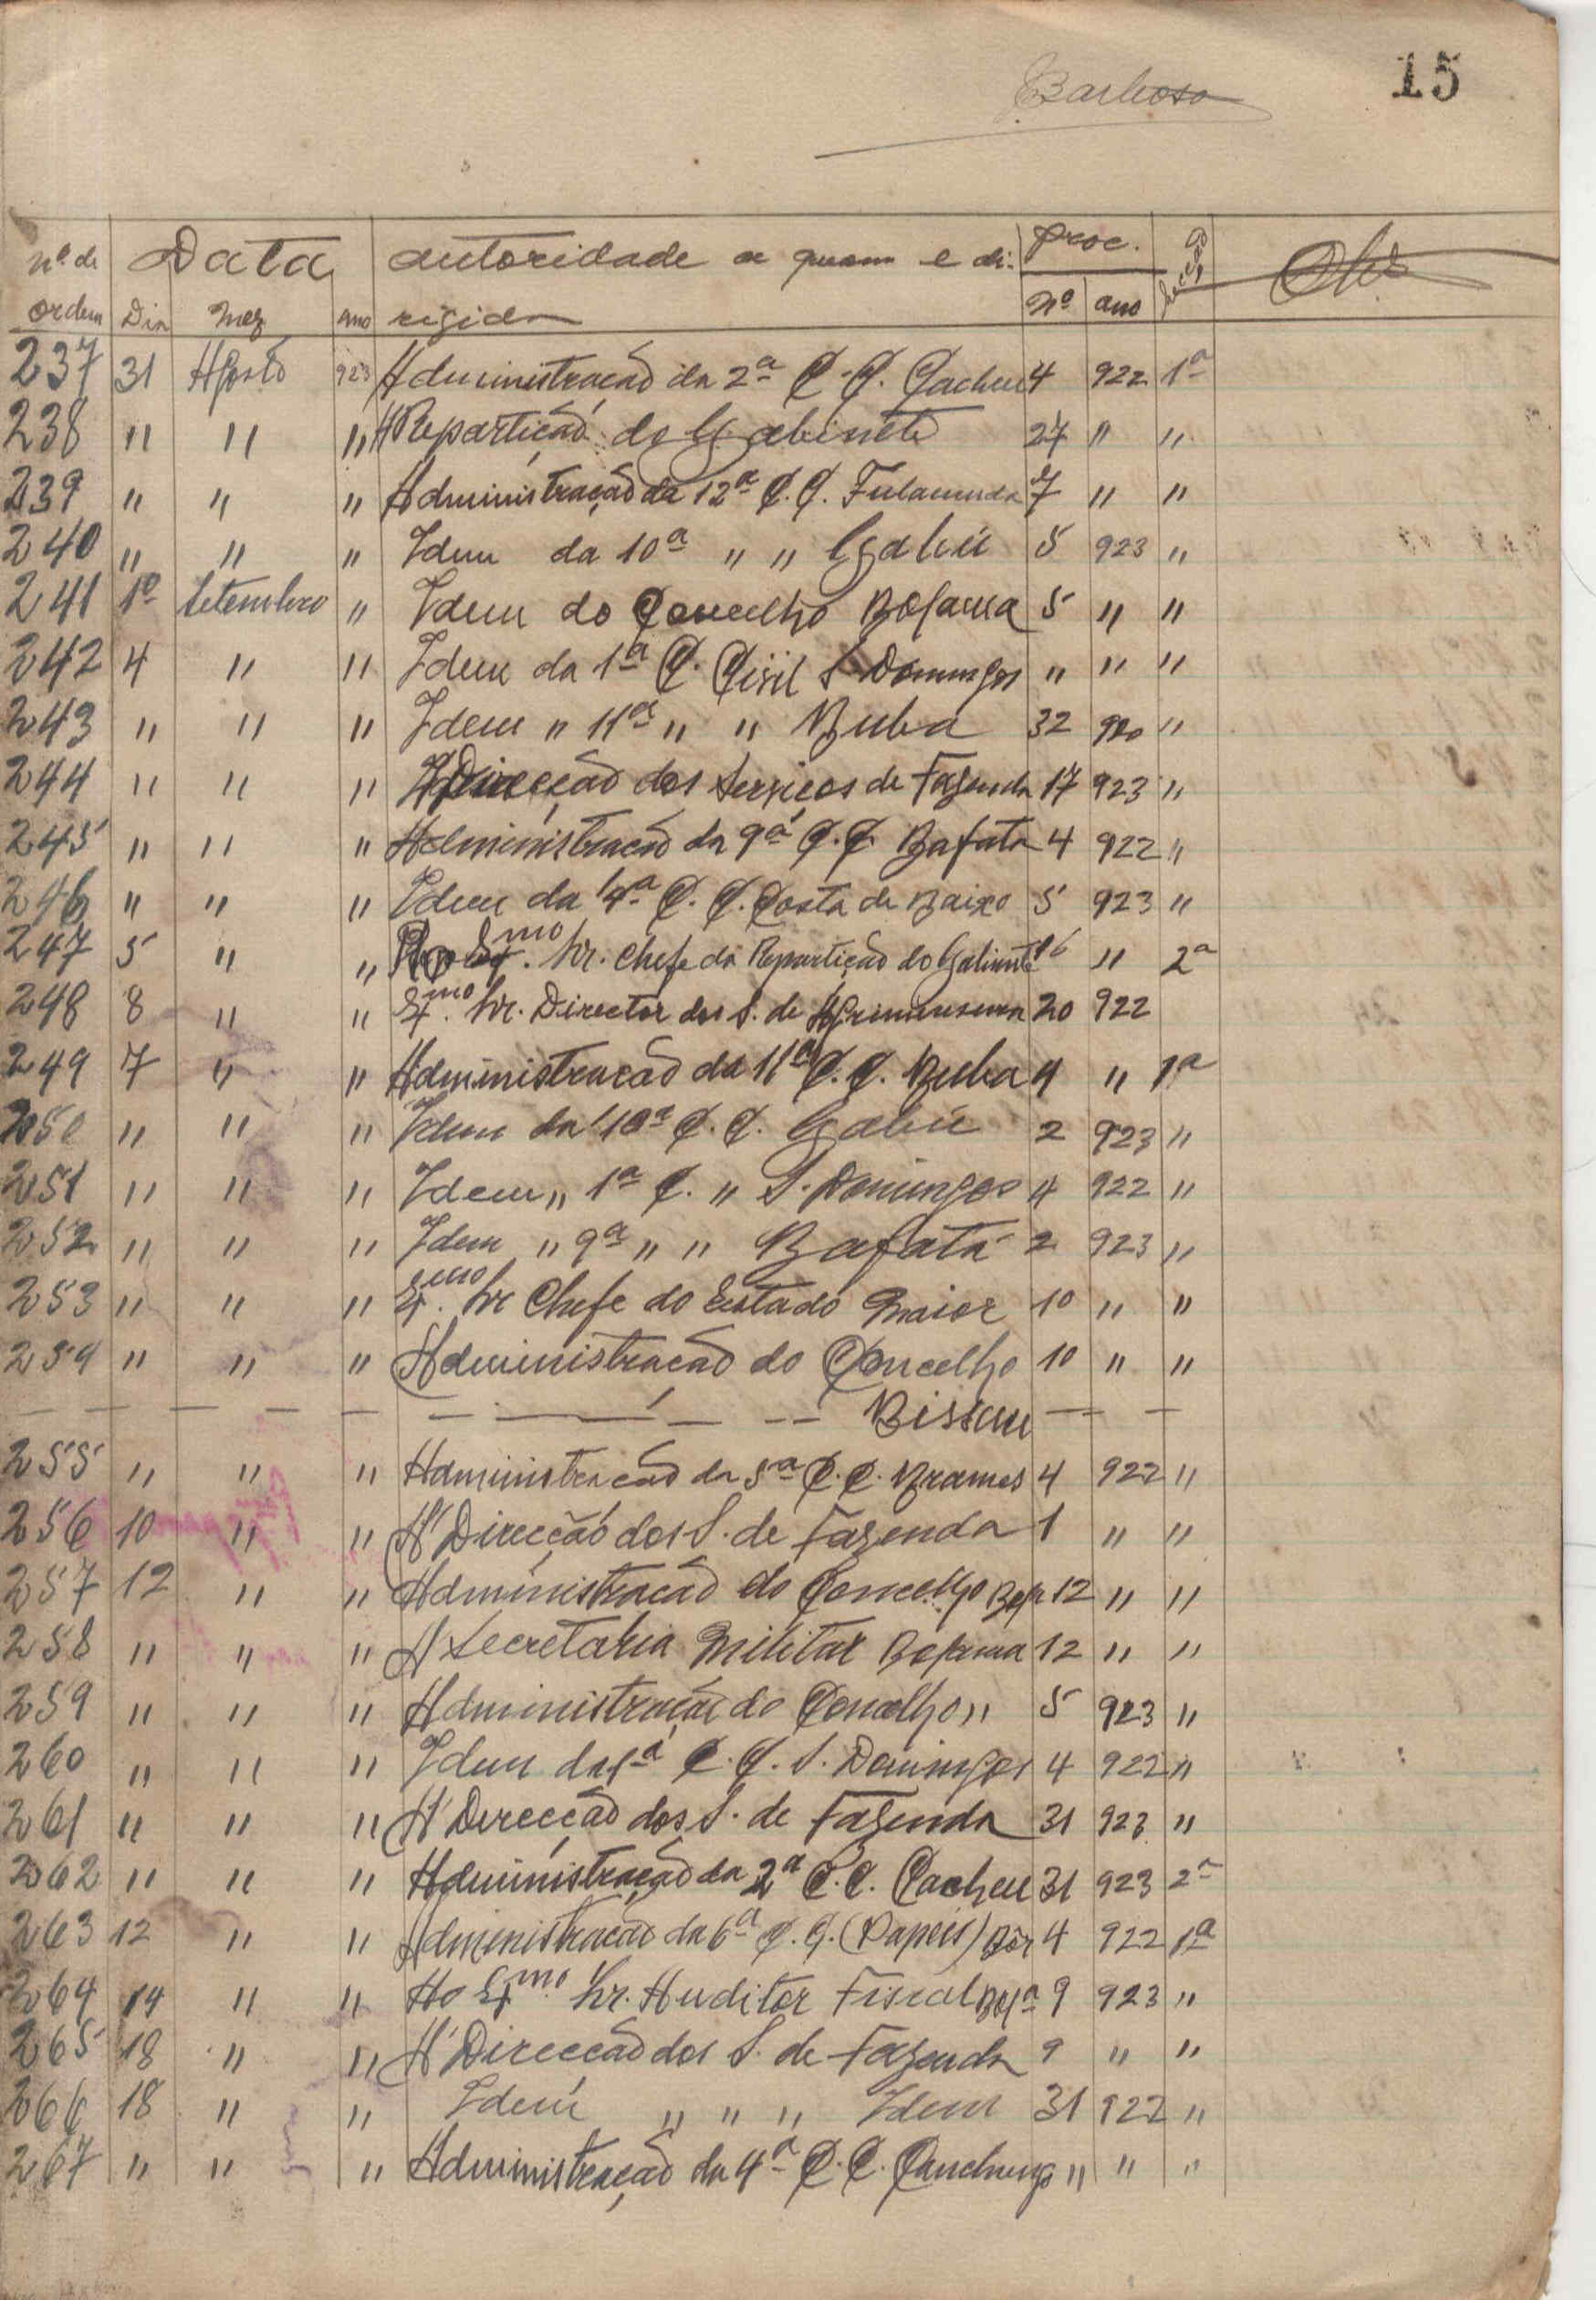 15
Barbosa
Nº de Data autoridade a quem e di- Proc. Secção Obs
ordem Dia Mez Ano rigida Nº ano
237 31 Agosto 923 Administração da 2ª C. C. Cacheu 4 922 1ª
238 " " " A Repartição do Gabinete 27 " "
239 " " " Administração da 12ª C. C. Fulacunda 7 " "
240 " " " Idem da 10ª " " Gabú 5 923 "
241 1º Setembro " Idem do Concelho Bolama 5 " "
242 4 " " Idem da 1ª C. Civil S. Domingos " " "
243 " " " Idem " 11ª " " Buba 32 920 "
244 " " " Direcção dos Serviços de Fazenda 17 923 "
245 " " " Administração da 9ª C. C. Bafata 4 922 "
246 " " " Idem da 4ª C. C. Costa de Baixo 5 923 "
247 5 " " Ao Exmo. Sr. Chefe da Repartição do Gabinete 16 " 2ª
248 8 " " Exmo. Sr. Director dos S. de Agrimensura 20 922
249 7 " " Administração da 11ª C. C. Buba 4 " 1ª
250 " " " Idem da 10ª C. C. Gabú 2 923 "
251 " " " Idem " 1ª C. " S. Domingos 4 922 "
252 " " " Idem " 9ª " " Bafatá 2 923 "
253 " " " Exmo. Sr Chefe do Estado Maior 10 " "
254 " " " Administração do Concelho 10 " "
— — — — — — — — — — Bissau — —
255 " " " Administração da 5ª C. C. Brames 4 922 "
256 10 " " A Direcção dos S. de Fazenda 1 " "
257 12 " " Administração do Concelho 12 " "
258 " " " A Secretaria Militar Bolama 12 " "
259 " " " Administração do Concelho " 5 923 "
260 " " " Idem da 1ª C. C. S. Domingos 4 922 "
261 " " " A Direcção dos S. de Fazenda 31 923 "
262 " " " Administração da 2ª C. C. Cacheu 31 923 2ª
263 12 " " Administração da 6ª C. C. (Papeis) Bôr 4 922 1ª
264 14 " " Ao Exmo. Sr. Auditor Fiscal 9 923 "
265 18 " " A Direcção dos S. de Fazenda 9 " "
266 18 " " Idem " " " Idem 31 922 "
267 " " " Administração da 4ª C. C. Canchungo " " "